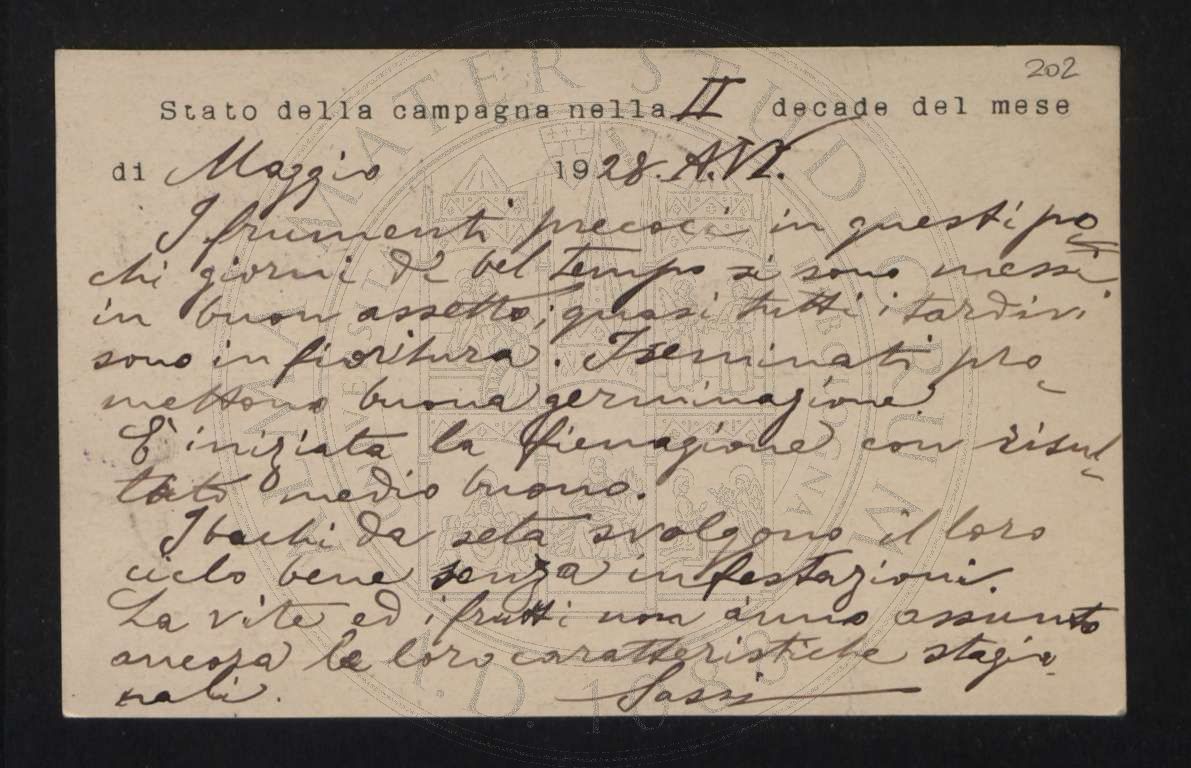 202
Stato della campagna nella II decade del mese
di Maggio 1928. A. VI.
I frumenti precoci in questi po-
chi giorni di bel tempo si sono messi
in buon assetto; quasi tutti i tardivi
sono in fioritura. I seminati pro-
mettono buona germinazione
E' iniziata la fienagione con risul-
tato medio buono.
I bachi da seta svolgono il loro
ciclo bene senza infestazioni.
La vite ed i frutti non ànno assunto
ancora le loro caratteristiche stagio-
nali. Sassi
ALMA MATER STUDIORUM
A.D. 1088